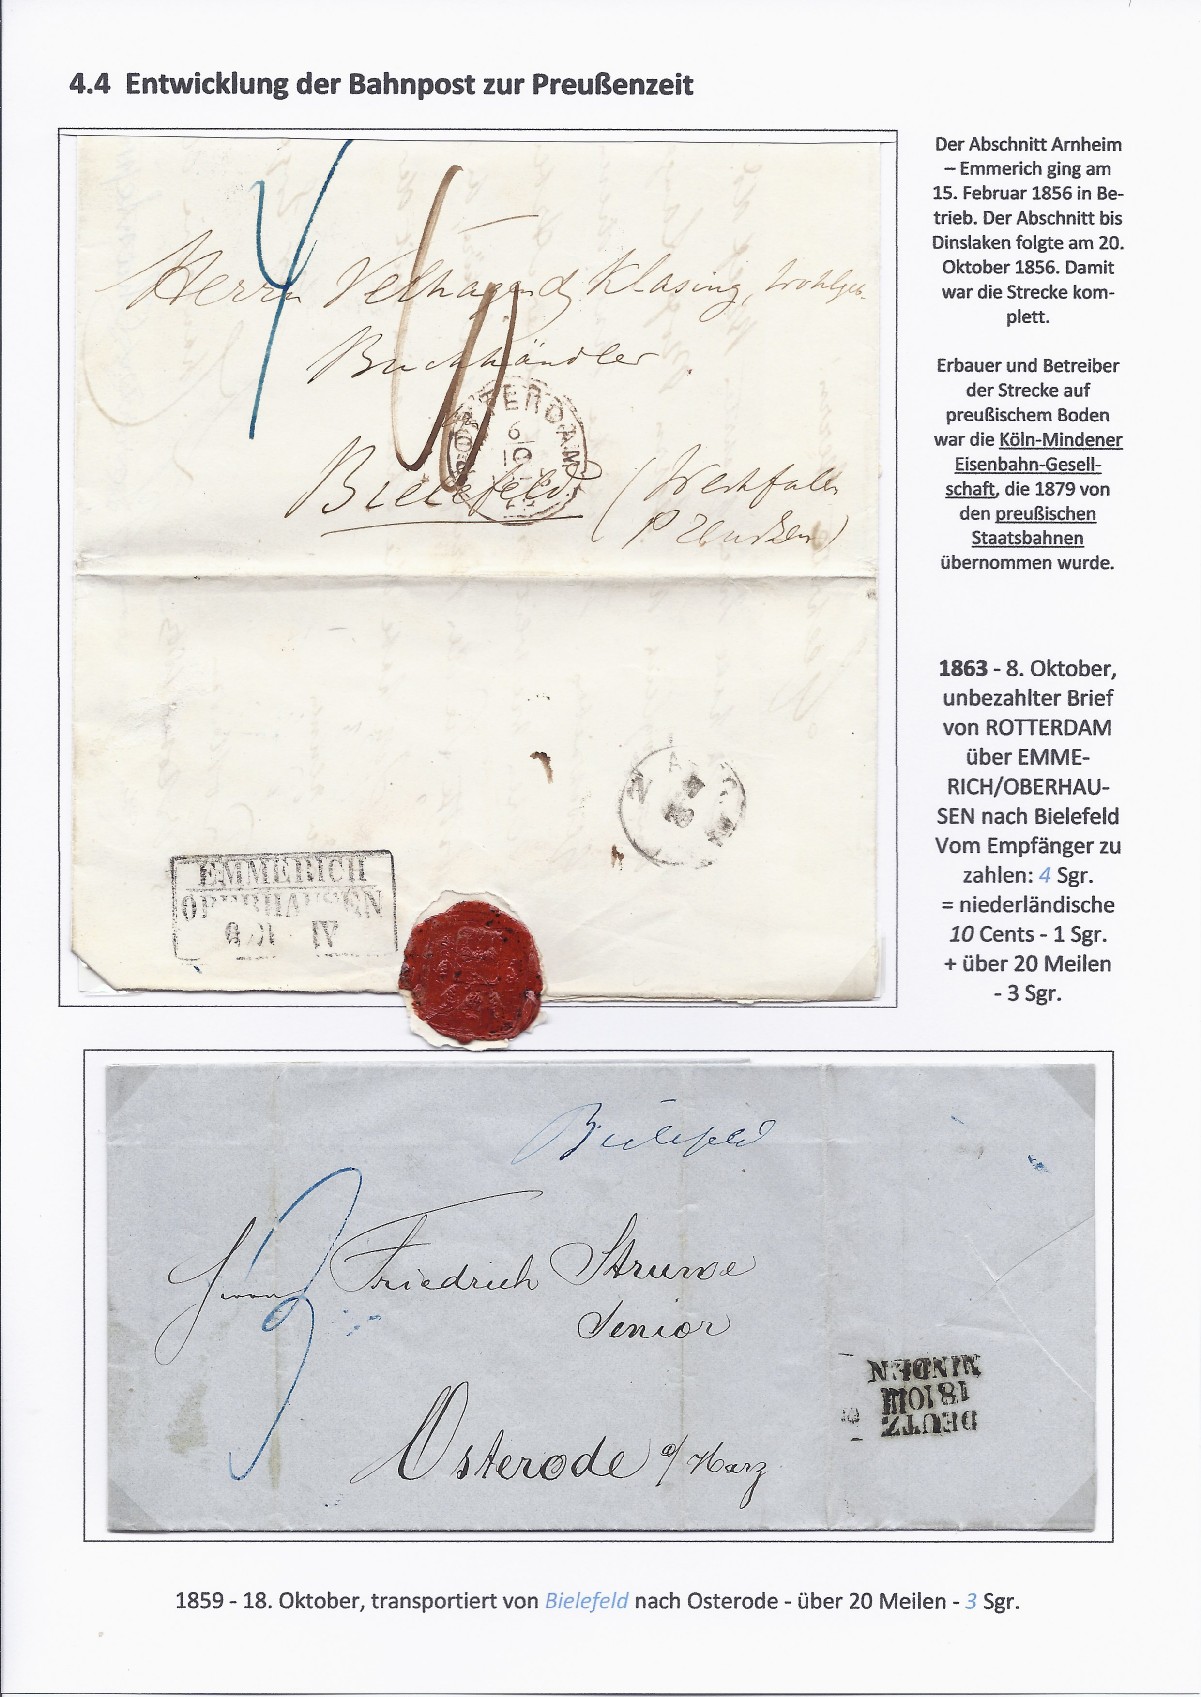 4.4 Entwicklung der Bahnpost zur Preußenzeit
Der Abschnitt Arnheim
– Emmerich ging am
15. Februar 1856 in Be-
trieb. Der Abschnitt bis
Dinslaken folgte am 20.
Oktober 1856. Damit
war die Strecke kom-
plett.
Erbauer und Betreiber
der Strecke auf
preußischem Boden
war die Köln-Mindener
Eisenbahn-Gesell-
schaft, die 1879 von
den preußischen
Staatsbahnen
übernommen wurde.
1863 - 8. Oktober,
unbezahlter Brief
von ROTTERDAM
über EMME-
RICH/OBERHAU-
SEN nach Bielefeld
Vom Empfänger zu
zahlen: 4 Sgr.
= niederländische
10 Cents - 1 Sgr.
+ über 20 Meilen
- 3 Sgr.
4
Herrn Velhagen & Klasing, Wohlgeb.
Buchhändler
Bielefeld (Westfalen
Preußen)
EMMERICH
OBERHAUSEN
IV
Bielefeld
3
Herrn Friedrich Struwe
Senior
Osterode a/Harz
MINDEN
18 10 III
DEUTZ
1859 - 18. Oktober, transportiert von Bielefeld nach Osterode - über 20 Meilen - 3 Sgr.